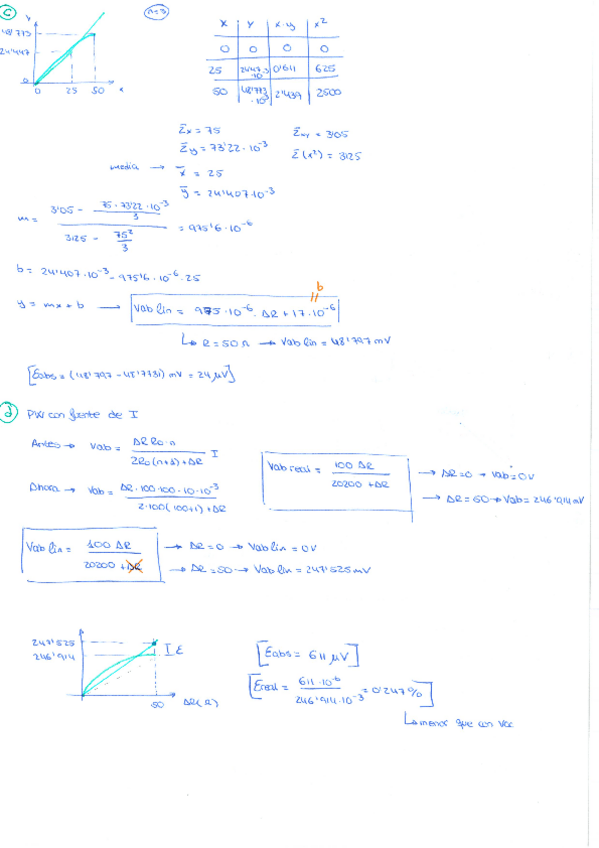 c
n=3
y
48'773
24'447
0
0 25 50 x
x y x·y x²
0 0 0 0
25 24'447·10⁻³ 0'611 625
50 48'773·10⁻³ 2'439 2500
Σx = 75 Σxy = 3'05
Σy = 73'22·10⁻³ Σ(x²) = 3125
media → x̄ = 25
ȳ = 24'407·10⁻³
m = (3'05 - 75·73'22·10⁻³/3) / (3125 - 75²/3) = 975'6·10⁻⁶
b = 24'407·10⁻³ - 975'6·10⁻⁶·25
b
y = mx + b → Vab lin = 975·10⁻⁶·ΔR + 17·10⁻⁶
↳ R = 50Ω → Vab lin = 48'797 mV
[Eabs = (48'797 - 48'7731) mV = 24 μV]
d PW con fuente de I
Antes → Vab = ΔR R₀·n / (2R₀(n+1)+ΔR) I
Ahora → Vab = ΔR·100·100·10·10⁻³ / (2·100(100+1)+ΔR)
Vab real = 100 ΔR / (20200 + ΔR) → ΔR=0 → Vab=0V
→ ΔR=50 → Vab=246'914 mV
Vab lin = 100 ΔR / (20200 + ΔR) → ΔR=0 → Vab lin=0V
→ ΔR=50 → Vab lin=247'525 mV
247'525
246'914
I ε
50 ΔR(Ω)
[Eabs = 611 μV]
[Ereal = 611·10⁻⁶ / 246'914·10⁻³ = 0'247%]
↳ menor que con Vcc